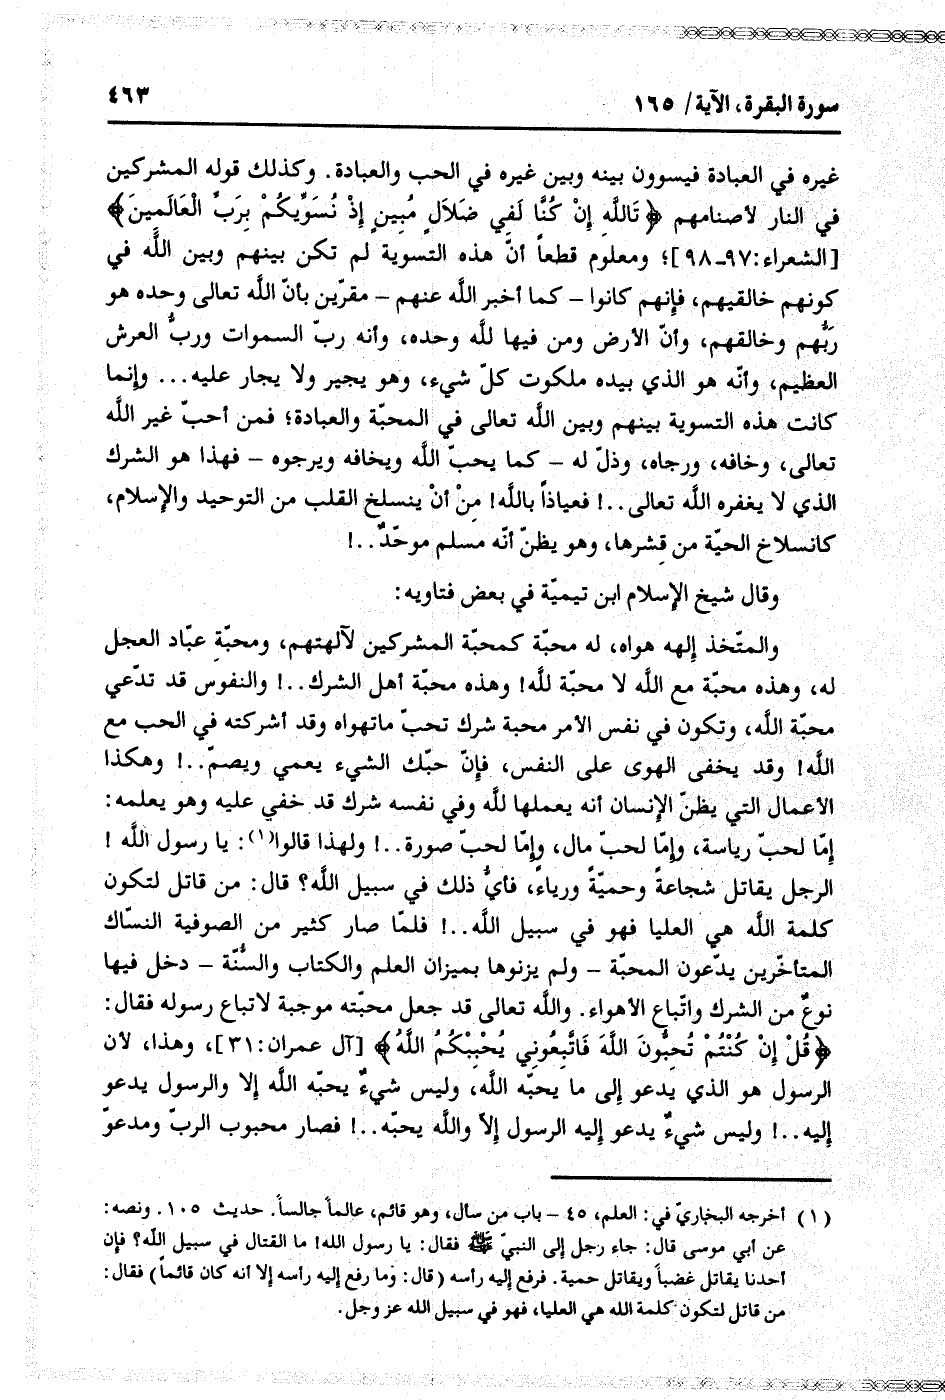 سورة البقرة، الآية/ ١٦٥
٤٦٣
غيره في العبادة فيسوون بينه وبين غيره في الحب والعبادة. وكذلك قوله المشركين
في النار لأصنامهم ﴿تَاللَّهِ إِنْ كُنَّا لَفِي ضَلَالٍ مُبِينٍ إِذْ نُسَوِّيكُمْ بِرَبِّ الْعَالَمِينَ﴾
[الشعراء:٩٧-٩٨]؛ ومعلوم قطعاً أنّ هذه التسوية لم تكن بينهم وبين اللَّه في
كونهم خالقيهم، فإنهم كانوا – كما أخبر اللَّه عنهم – مقرّين بأنّ اللَّه تعالى وحده هو
رَبُّهم وخالقهم، وأنّ الأرض ومن فيها للَّه وحده، وأنه ربّ السموات وربُّ العرش
العظيم، وأنّه هو الذي بيده ملكوت كلّ شيء، وهو يجير ولا يجار عليه... وإنما
كانت هذه التسوية بينهم وبين اللَّه تعالى في المحبّة والعبادة؛ فمن أحبّ غير اللَّه
تعالى، وخافه، ورجاه، وذلّ له – كما يحبّ اللَّه ويخافه ويرجوه – فهذا هو الشرك
الذي لا يغفره اللَّه تعالى..! فعياذاً باللَّه! مِنْ أنْ ينسلخ القلب من التوحيد والإسلام،
كانسلاخ الحيّة من قِشرها، وهو يظنّ أنّه مسلم موحّدٌ..!
وقال شيخ الإسلام ابن تيميّة في بعض فتاويه:
والمتّخذ إلهه هواه، له محبّة كمحبّة المشركين لآلهتهم، ومحبّةِ عبّاد العجل
له، وهذه محبّة مع اللَّه لا محبّة للَّه! وهذه محبّة أهل الشرك..! والنفوس قد تدّعي
محبّة اللَّه، وتكون في نفس الأمر محبة شرك تحبّ ماتهواه وقد أشركته في الحب مع
اللَّه! وقد يخفى الهوى على النفس، فإنّ حبّك الشيء يعمي ويصمّ..! وهكذا
الأعمال التي يظنّ الإنسان أنه يعملها للَّه وفي نفسه شرك قد خفي عليه وهو يعلمه:
إمّا لحبّ رياسة، وإمّا لحبّ مال، وإمّا لحبّ صورة..! ولهذا قالوا(١): يا رسول اللَّه !
الرجل يقاتل شجاعةً وحميّةً ورياءً، فأيُّ ذلك في سبيل اللَّه؟ قال: من قاتل لتكون
كلمة اللَّه هي العليا فهو في سبيل اللَّه..! فلمّا صار كثير من الصوفية النسّاك
المتأخّرين يدّعون المحبّة – ولم يزنوها بميزان العلم والكتاب والسُّنّة – دخل فيها
نوعٌ من الشرك واتّباع الأهواء. واللَّه تعالى قد جعل محبّته موجبة لاتباع رسوله فقال:
﴿قُلْ إِنْ كُنْتُمْ تُحِبُّونَ اللَّهَ فَاتَّبِعُونِي يُحْبِبْكُمُ اللَّهُ﴾ [آل عمران:٣١]، وهذا، لأن
الرسول هو الذي يدعو إلى ما يحبّه اللَّه، وليس شيءٌ يحبّه اللَّه إلا والرسول يدعو
إليه..! وليس شيءٌ يدعو إليه الرسول إلاّ واللَّه يحبّه..! فصار محبوب الربّ ومدعوّ
(١) أخرجه البخاريّ في: العلم، ٤٥ – باب من سأل، وهو قائم، عالماً جالساً. حديث ١٠٥. ونصه:
عن أبي موسى قال: جاء رجل إلى النبيّ ﷺ فقال: يا رسول الله! ما القتال في سبيل اللّه؟ فإن
أحدنا يقاتل غضباً ويقاتل حمية. فرفع إليه رأسه (قال: وما رفع إليه رأسه إلا أنه كان قائماً) فقال:
من قاتل لتكون كلمة الله هي العليا، فهو في سبيل الله عز وجل.